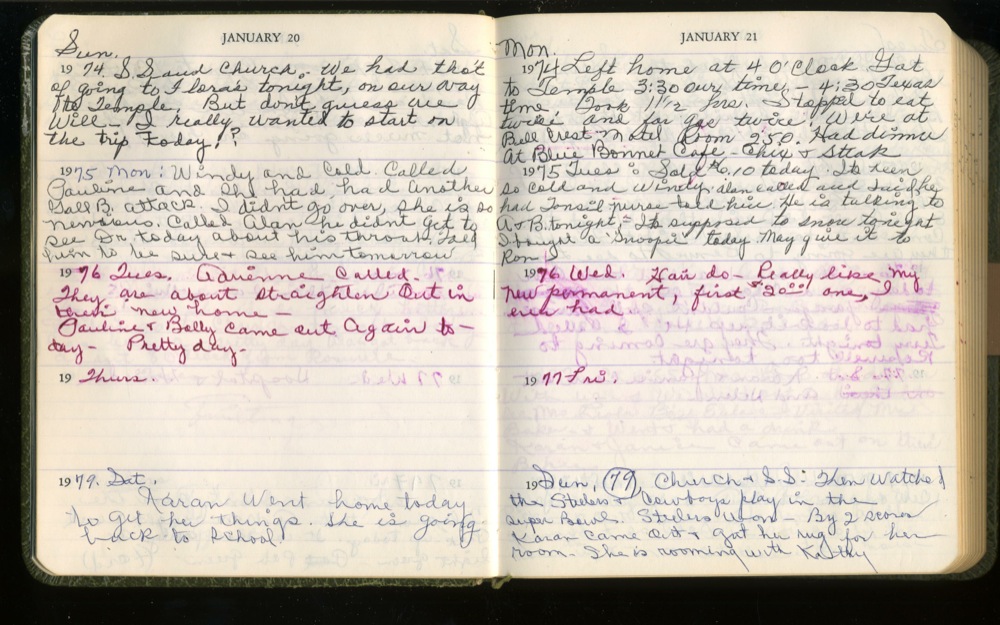 JANUARY 20
Sun.
1974. S S and Church. We had thot
of going to Floras tonight, on our way
to Temple. But dont guess we
will - I really wanted to start on
the trip today!?
1975 Mon: Windy and Cold. Called
Pauline and she had, had another
Gall B. attack. I didn't go over, she is so
nervous. Called Alan, he didn't get to
see Dr. today about his throat. Told
him to be sure & see him tomorrow
1976 Tues. Adrienne Called.
They are about straighten out in
their new home -
Pauline & Bolly came out again to-
day - Pretty day -
19 Thurs.
1979. Sat.
Karan Went home today
to get her things. She is going
back to school
JANUARY 21
Mon.
1974 Left home at 4 O'Clock Gat
to Temple 3:30 our time, - 4:30 Texas
time. Took 11 1/2 hrs. Stopped to eat
twice and for gas twice! We're at
Bell Crest Motel Room 250. Had dinner
At Blue Bonnet Cafe - Chix & Steak
1975 Tues: Sold 10 today. Its been
so cold and windy. Alan called and said he
had Tonsil nurse told him. He is talking to
A & B. tonight - Its supposed to snow tonight
I bought a "Snoopie" today May give it to
Ron
1976 Wed. Hair do - Really like my
new permanent, first $20.00 one, I
ever had
1977 Fri.
19 Sun, (79), Church & S.S: Then Watched
the Steelers & Cowboys play in the
super Bowl. Steelers won - By 2 scores
Karan came out & got her rug for her
room - She is rooming with Kathy